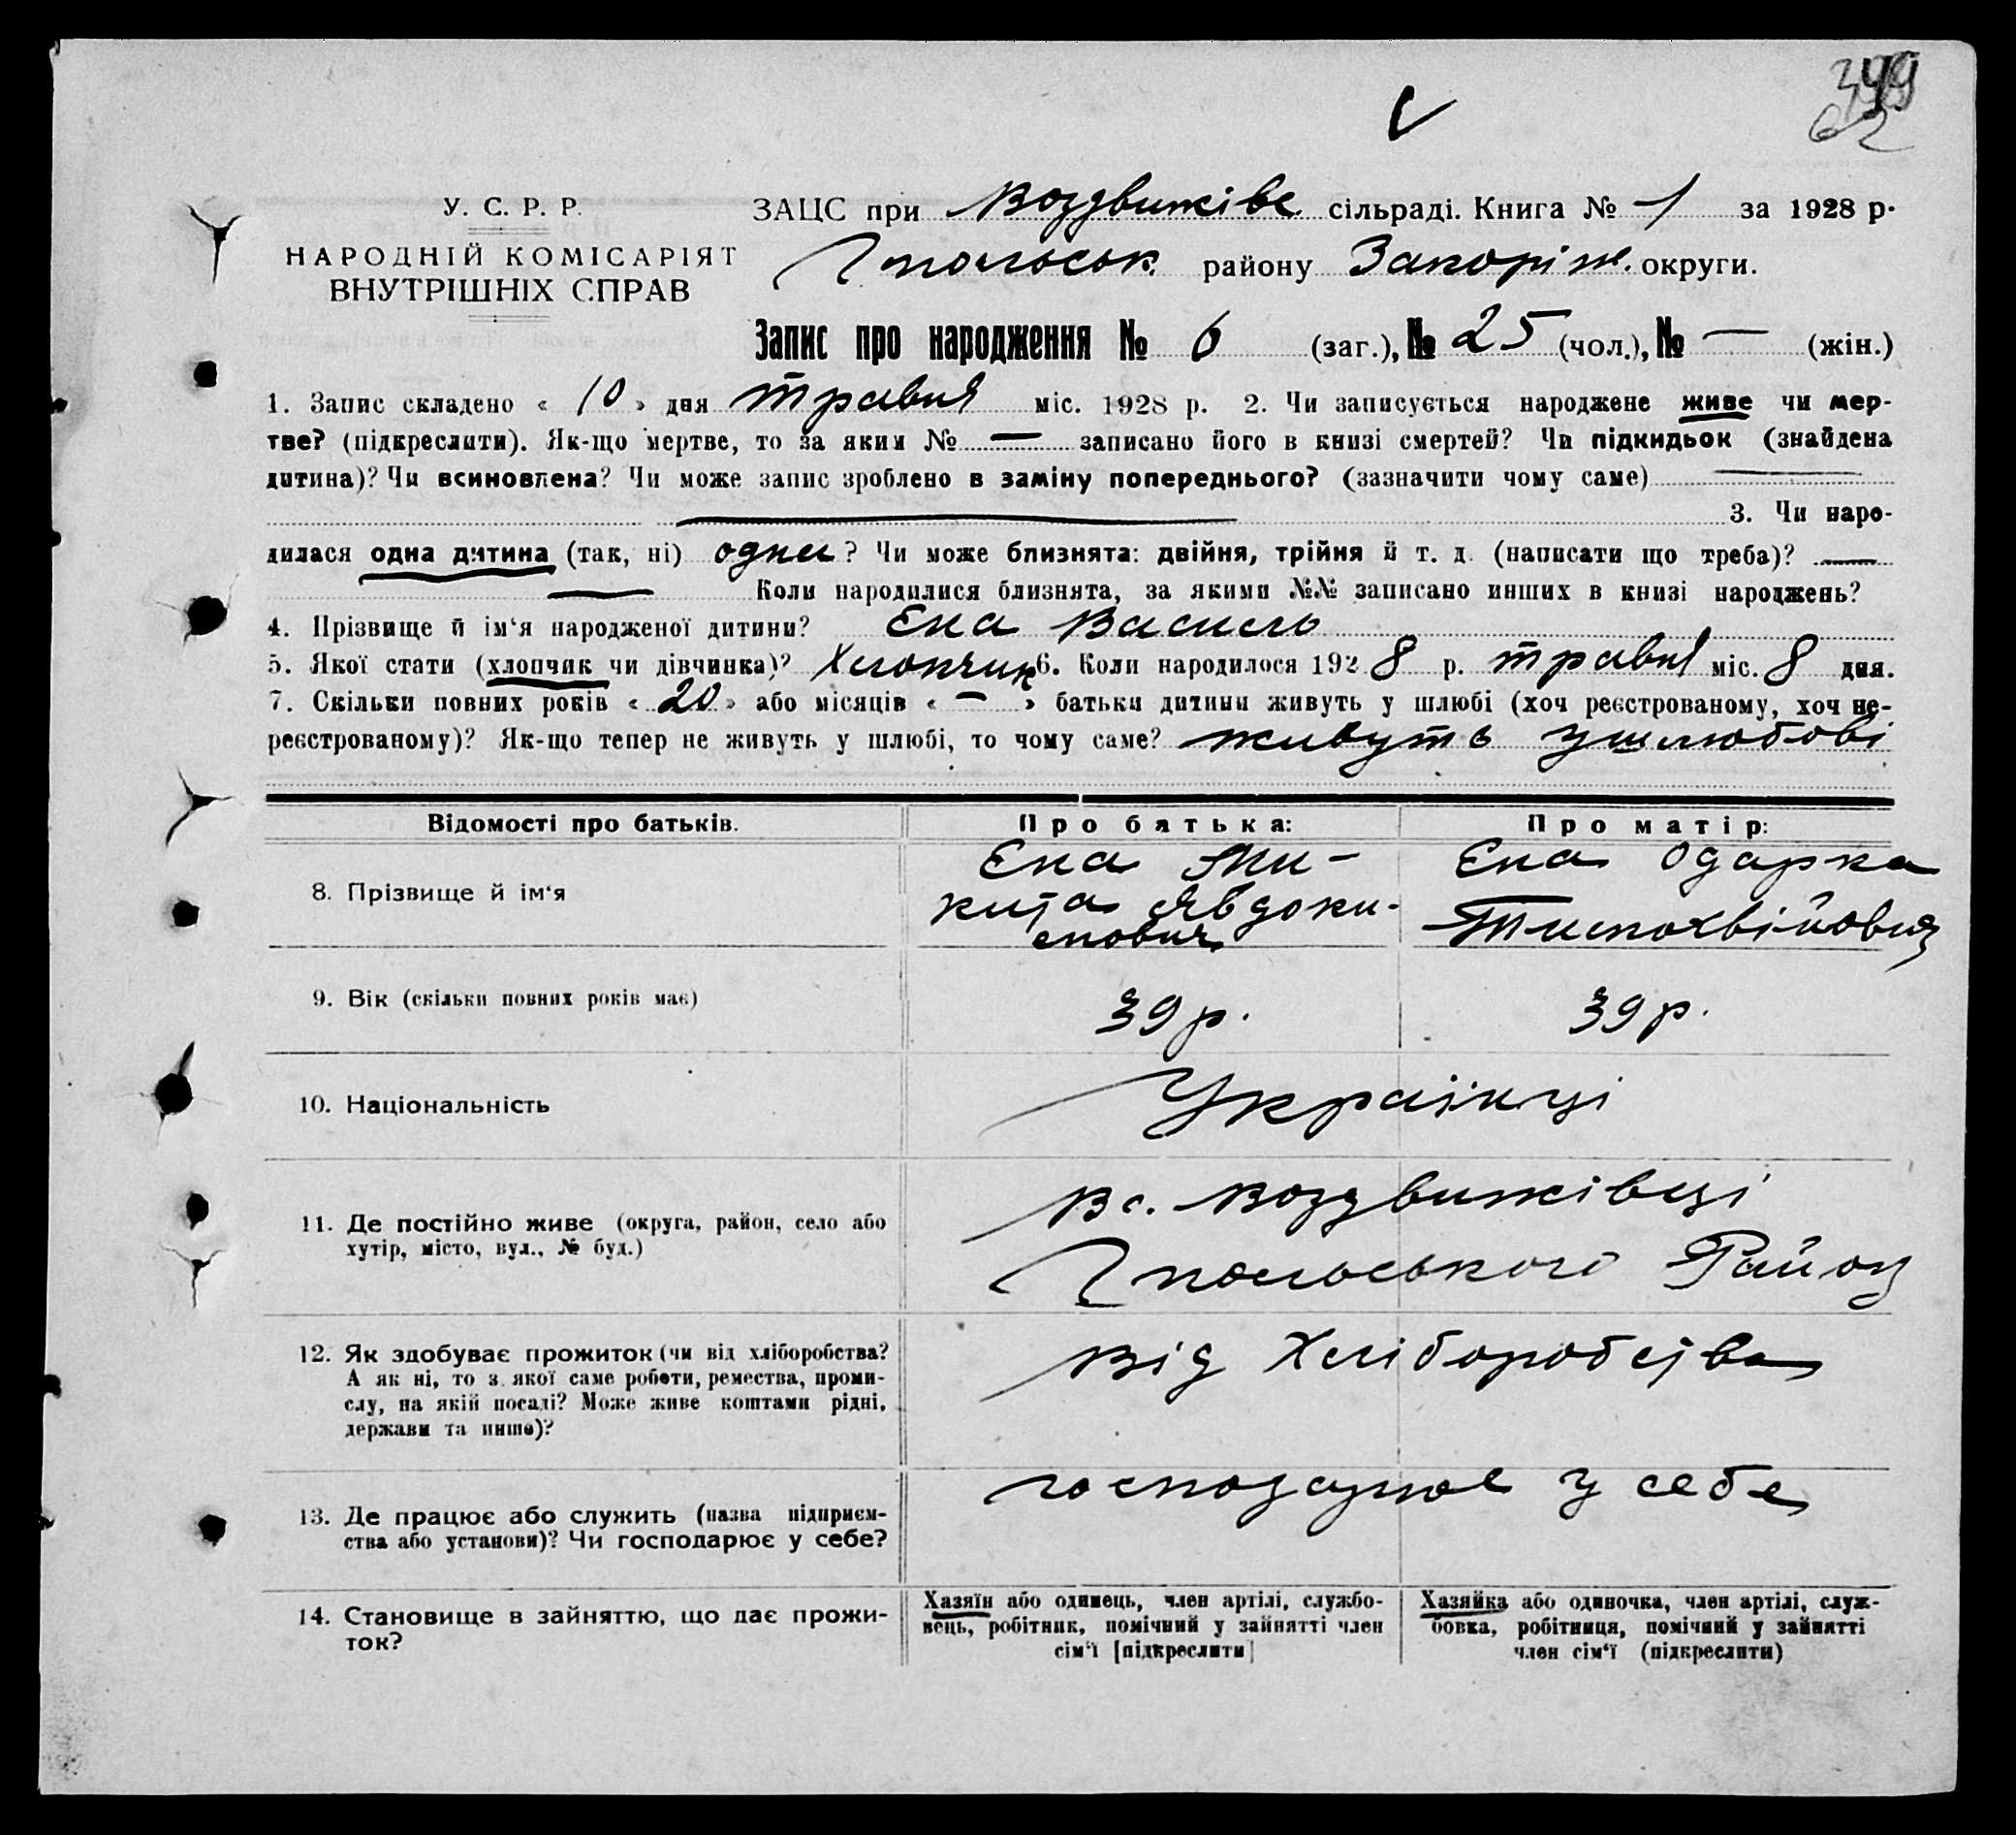 У. С. Р. Р.
НАРОДНІЙ КОМІСАРІЯТ
ВНУТРІШНІХ СПРАВ
ЗАЦС при Воздвижівс. сільраді. Книга № 1 за 1928 р.
Гпольськ. району Запоріж. округи.
Запис про народження № 6 (заг.), № 25 (чол.), № — (жін.)
1. Запис складено « 10 » дня травня міс. 1928 р. 2. Чи записується народжене живе чи мер-
тве? (підкреслити). Як-що мертве, то за яким № — записано його в книзі смертей? Чи підкидьок (знайдена
дитина)? Чи всиновлена? Чи може запис зроблено в заміну попереднього? (зазначити чому саме) —
— 3. Чи наро-
дилася одна дитина (так, ні) одна ? Чи може близнята: двійня, трійня й т. д. (написати що треба)? —
— Коли народилися близнята, за якими №№ записано инших в книзі народжень?
4. Прізвище й ім‘я народженої дитини? Єна Василь
5. Якої стати (хлопчик чи дівчинка)? Хлопчик 6. Коли народилося 1928 р. травня міс. 8 дня.
7. Скільки повних років « 20 » або місяців « — » батьки дитини живуть у шлюбі (хоч реєстрованому, хоч не-
реєстрованому)? Як-що тепер не живуть у шлюбі, то чому саме? живуть у шлюбові
Відомості про батьків. Про батька: Про матір:
8. Прізвище й ім‘я
Єна Ми-
кита Явдоки-
мович
Єна Одарка
9. Вік (скільки повних років має) 39 р. 39 р.
10. Національність Українці
11. Де постійно живе (округа, район, село або
хутір, місто, вул., № буд.)
В с. Воздвижівці
Гпольського Району
12. Як здобуває прожиток (чи від хліборобства?
А як ні, то з якої саме роботи, ремества, проми-
слу, на якій посаді? Може живе коштами рідні,
держави та инше)?
Від Хліборобства
13. Де працює або служить (назва підприєм-
ства або установи)? Чи господарює у себе?
господарює у себе
14. Становище в зайняттю, що дає прожи-
ток?
Хазяїн або одинець, член артілі, службо-
вець, робітник, помічний у зайнятті член
сім‘ї [підкреслити]
Хазяйка або одиночка, член артілі, служ-
бовка, робітниця, помічний у зайнятті
член сім‘ї (підкреслити)